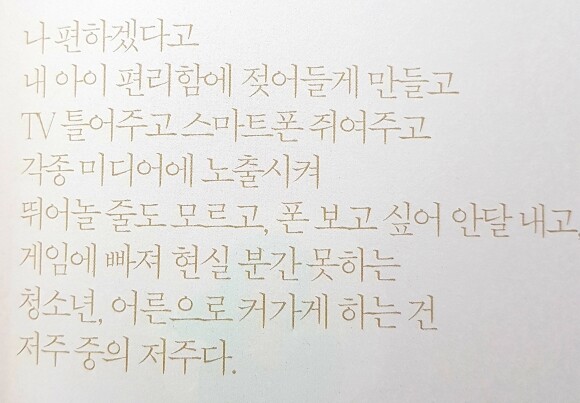 나 편하겠다고
내 아이 편리함에 젖어들게 만들고
TV 틀어주고 스마트폰 쥐여주고
각종 미디어에 노출시켜
뛰어놀 줄도 모르고, 폰 보고 싶어 안달 내고,
게임에 빠져 현실 분간 못하는
청소년, 어른으로 커가게 하는 건
저주 중의 저주다.